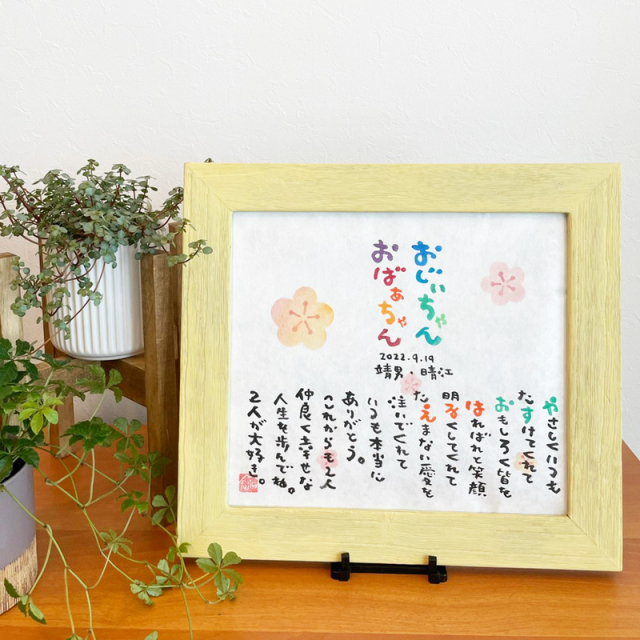 おじいちゃん
おばあちゃん
2022.9.19
靖男・晴江
やさしくいつも
たすけてくれて
おもしろく皆を
はればれと笑顔
明るくしてくれて
たえまない愛を
注いでくれて
いつも本当に
ありがとう。
これからも2人
仲良く幸せな
人生を歩んでね。
2人が大好き。